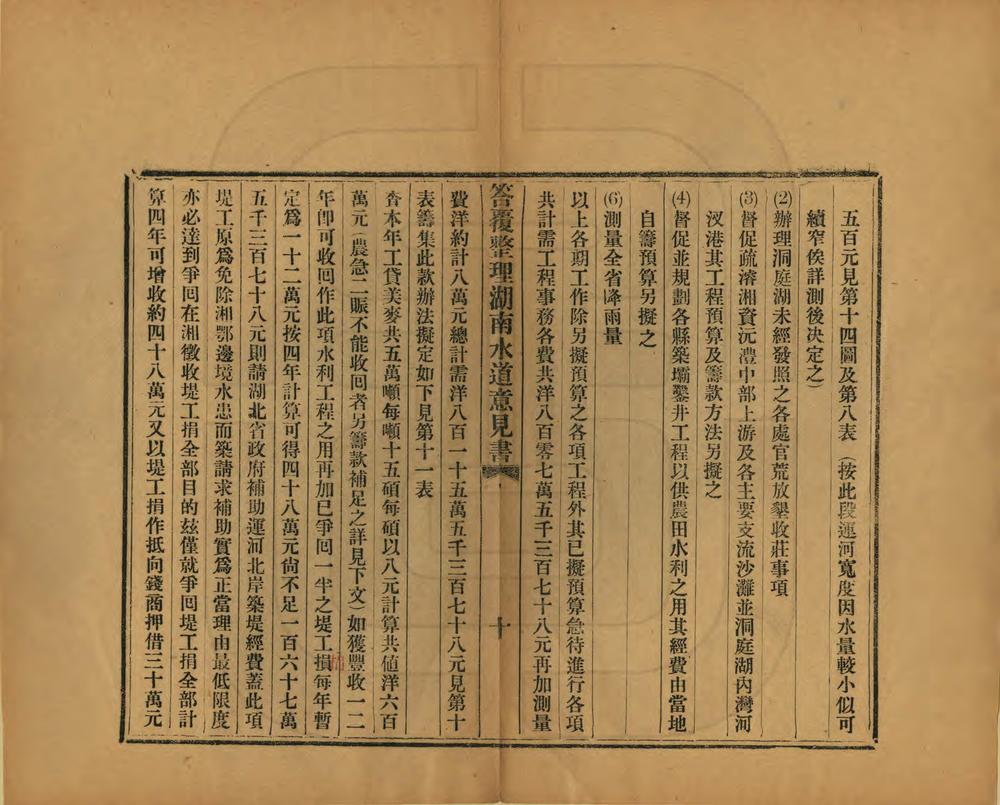 五百元見第十四圖及第八表（按此段運河寬度因水量較小似可
縮窄俟詳測後決定之）
(2)辦理洞庭湖未經發照之各處官荒放墾收莊事項
(3)督促疏濬湘資沅澧中部上游及各主要支流沙灘並洞庭湖內灣河
汊港其工程預算及籌款方法另擬之
(4)督促並規劃各縣築壩鑿井工程以供農田水利之用其經費由當地
自籌預算另擬之
(6)測量全省降雨量
以上各期工作除另擬預算之各項工程外其已擬預算急待進行各項
共計需工程事務各費共洋八百零七萬五千三百七十八元再加測量
答覆整理湖南水道意見書　十
費洋約計八萬元總計需洋八百一十五萬五千三百七十八元見第十
表籌集此款辦法擬定如下見第十一表
查本年工貸美麥共五萬噸每噸十五碩每碩以八元計算共值洋六百
萬元（農急二賑不能收回者另籌款補足之詳見下文）如獲豐收一二
年卽可收回作此項水利工程之用再加已爭回一半之堤工損每年暫
定爲一十二萬元按四年計算可得四十八萬元尙不足一百六十七萬
五千三百七十八元則請湖北省政府補助運河北岸築堤經費蓋此項
堤工原爲免除湘鄂邊境水患而築請求補助實爲正當理由最低限度
亦必達到爭回在湘徵收堤工捐全部目的玆僅就爭回堤工捐全部計
算四年可增收約四十八萬元又以堤工捐作抵向錢商押借三十萬元